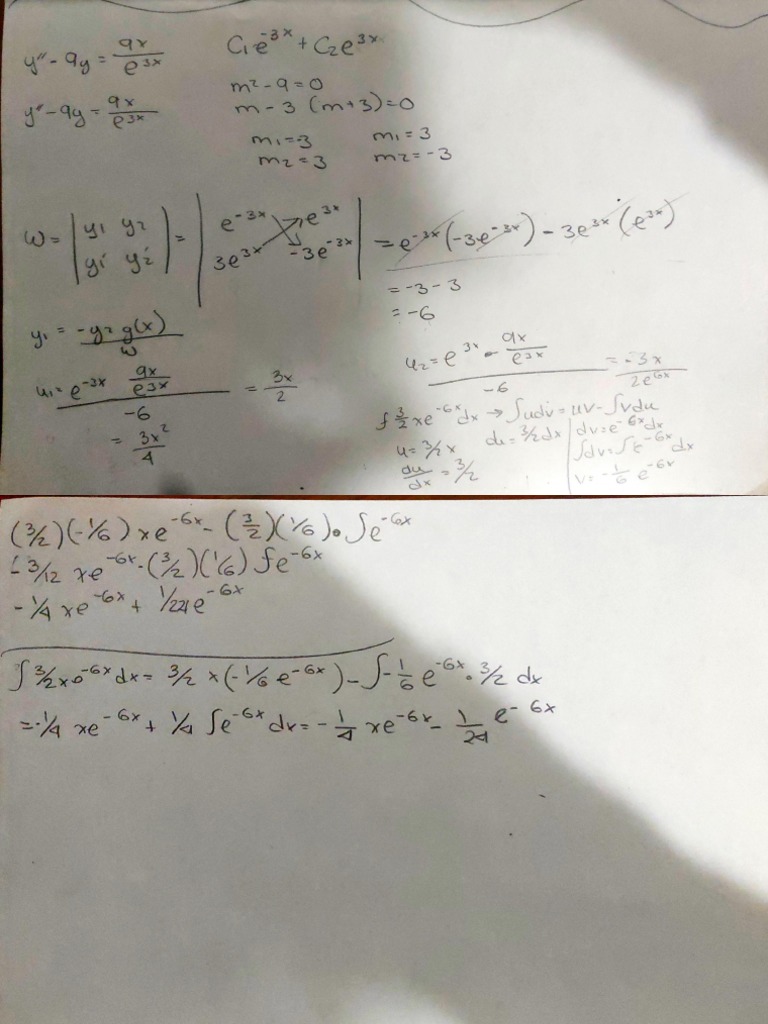 y'' - 9y = 9x/e^3x
C₁e^-3x + C₂e^3x
y'' - 9y = 9x/e^3x
m² - 9 = 0
m - 3 (m+3) = 0
m₁ = -3 m₁ = 3
m₂ = 3 m₂ = -3
W = |y₁ y₂ / y₁' y₂'| = |e^-3x e^3x / 3e^3x -3e^-3x| = e^-3x (-3e^-3x) - 3e^3x (e^3x)
= -3 - 3
= -6
y₁ = -y₂ g(x)/w
u₁ = e^-3x 9x/e^3x / -6 = 3x/2
= 3x²/4
u₂ = e^3x - 9x/e^3x / -6 = -3x/2e^6x
∫ 3/2 xe^-6x dx → ∫udv = uv - ∫vdu
u = 3/2 x du = 3/2 dx dv = e^-6x dx
du/dx = 3/2 ∫dv = ∫e^-6x dx
v = -1/6 e^-6x
(3/2)(-1/6) xe^-6x - (3/2)(1/6) • ∫e^-6x
- 3/12 xe^-6x - (3/2)(1/6) ∫e^-6x
- 1/4 xe^-6x + e^-6x
∫ 3/2 x e^-6x dx = 3/2 x (-1/6 e^-6x) - ∫ -1/6 e^-6x • 3/2 dx
= -1/4 xe^-6x + 1/4 ∫e^-6x dx = -1/4 xe^-6x - 1/24 e^-6x